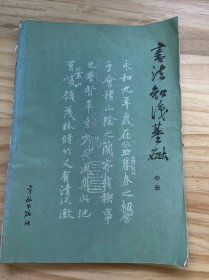 書法知识基础
中册
永和九年歲在癸丑暮春之初會
于會稽山陰之蘭亭脩稧事
也羣賢畢至少長咸集此地
有崇山峻領茂林脩竹又有清流激
宇航出版社